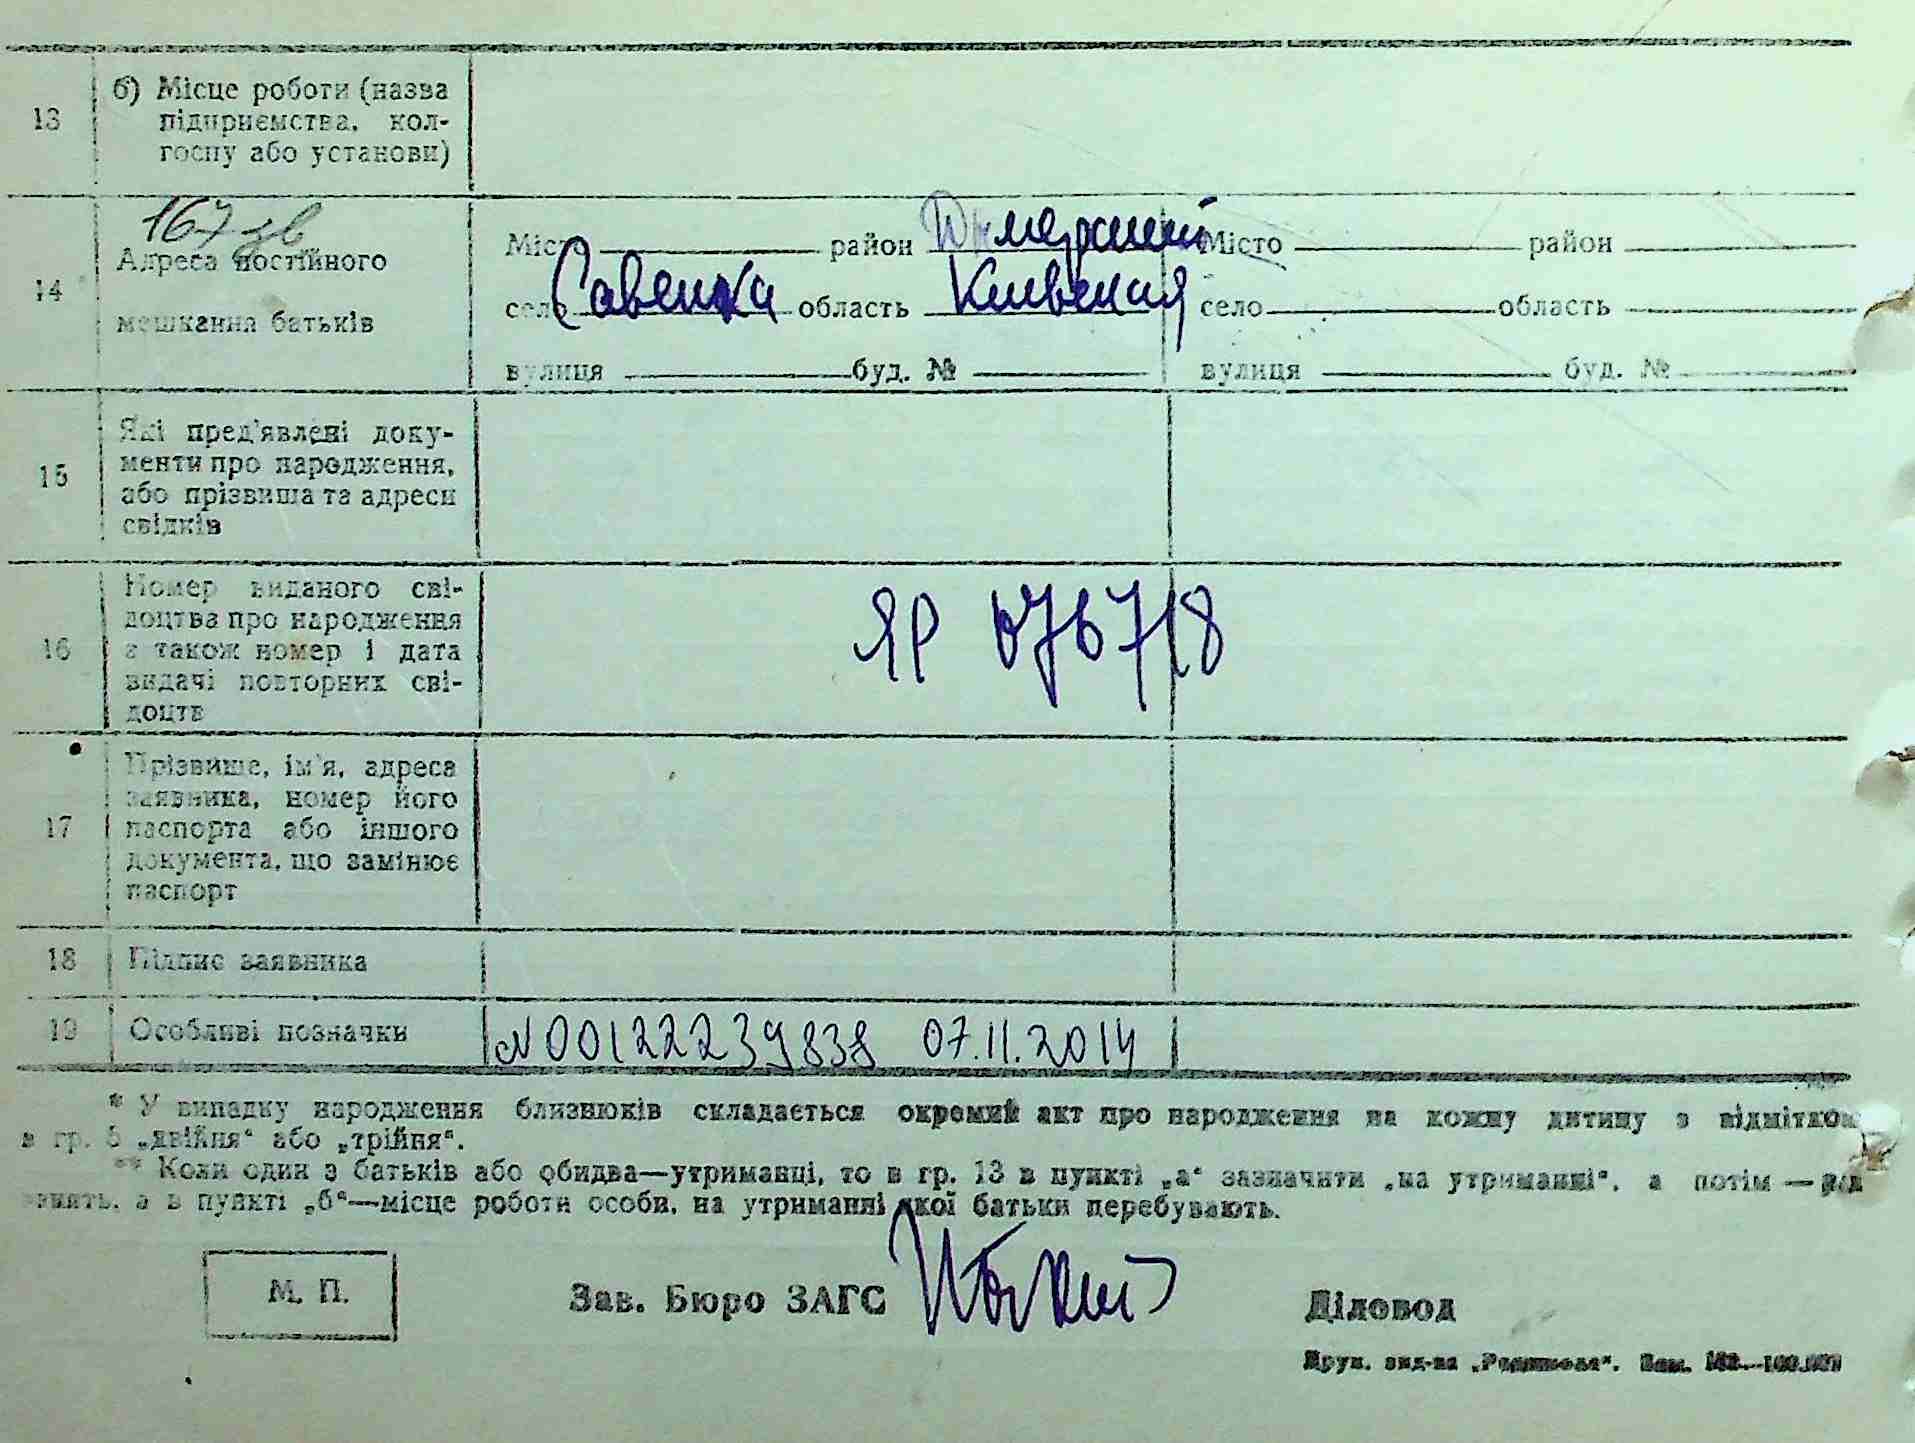 13 б) Місце роботи (назва
підприємства, кол-
госпу або установи)
167 зв
14 Адреса постійного
мешкання батьків
Місто район Димерский Місто район
село Савенка область Киевская село область
вулиця буд. № вулиця буд. №
15 Які пред'явлені доку-
менти про народження,
або прізвища та адреси
свідків
16 Номер виданого сві-
доцтва про народження
а також номер і дата
видачі повторних сві-
доцтв
ЯР 076718
17 Прізвище, ім'я, адреса
заявника, номер його
паспорта або іншого
документа, що замінює
паспорт
18 Підпис заявника
19 Особливі позначки №00122239838 07.11.2014
* У випадку народження близнюків складається окремий акт про народження на кожну дитину з відміткою
в гр. 5 „двійня“ або „трійня“.
** Коли один з батьків або обидва—утриманці, то в гр. 13 в пункті „а“ зазначити „на утриманні“, а потім —
а в пункті „б“—місце роботи особи, на утриманні якої батьки перебувають.
М. П.
Зав. Бюро ЗАГС
Діловод
Друк. вид-ва Зам.